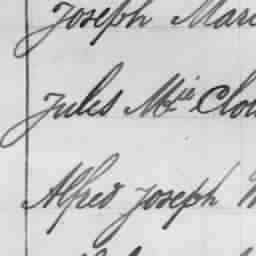 Joseph Mari
Jules M^ie Clou
Alfred Joseph